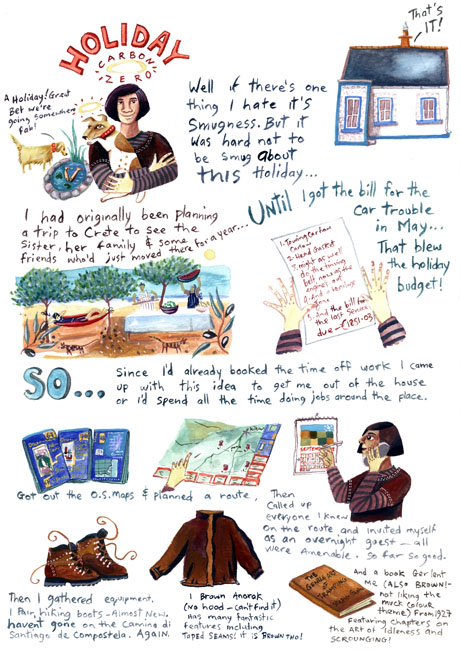 HOLIDAY
CARBON
ZERO
That's
IT!
A Holiday! Great
Bet we're
going somewhere
Fab!
Well if there's one
thing I hate it's
Smugness. But it
was hard not to
be smug about
THIS Holiday...
I had originally been planning
a trip to Crete to see the
Sister, her family & some
friends who'd just moved there for a year...
Until I got the bill for the
car trouble
in May...
That blew
the holiday
budget!
2. Head Gasket
3. might as well
do the timing
belt now as the
engine's out
the last service
SO...
Since I'd already booked the time off work I came
up with this idea to get me out of the house
or I'd spend all the time doing jobs around the place.
Got out the O.S. maps & planned a route,
Then
Called up
everyone I knew
on the route and invited myself
as an overnight guest - all
were Amenable. So far so good.
Then I gathered equipment.
1 Pair hiking boots - Almost New.
haven't gone on the Camino di
Santiago de Compostela. AGAIN.
1 Brown Anorak
(No hood - can't find it)
Has many fantastic
features including
Taped SEAMS! it is BROWN too!
And a book Ger lent
me (ALSO BROWN! -
not liking the
muck colour
theme) From 1927
Featuring chapters on
the ART of Idleness and
SCROUNGING!